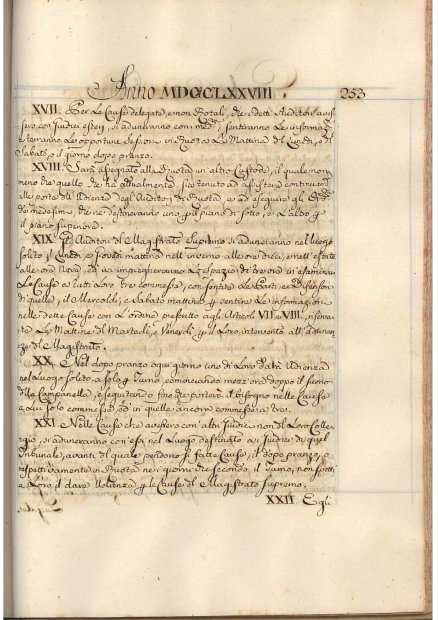 Anno MDCCLXXVIII. 253
XVII. Per le Cause delegate, e non Rotali, che i detti Auditori aves-
sero con Giudici esteri, si aduneranno con i med.mi, sentiranno le informaz.
e terranno le opportune Sessioni in Ruota la Mattina del Lunedì, e il
Sabato, o il giorno dopo pranzo.
XVIII. Sarà assegnato alla Ruota un altro Custode, il quale non
meno che quello che ha attualmente, sia tenuto ad assistere continuam.
alle porte dell'Udienza degli Auditori di Ruota, ed ad eseguire gli Ordini
de medesimi, che ne destineranno uno p. il piano di sotto, e l'altro p.
il piano superiore.
XIX. Gl'Auditori del Magistrato Supremo si aduneranno nel luogo
solito, il Lunedì, e Giovedì mattina nell'inverno alle ore dieci, e nell'estate
alle ore Nove, ed ivi impiegheranno lo spazio di tre ore in esaminar
le Cause a tutti Loro tre commesse, con sentire le Parti, ed i Difensori
di quelle, il Mercoldì, e Sabato mattina p. sentire le informazioni
nelle dette Cause con l'ordine prescritto agli Articoli VII e VIII, riserva-
te le Mattine del Martedì, e Venerdì p. il Loro intervento all'Adunan-
ze del Magistrato.
XX. Nel dopo pranzo ogni giorno uno di Loro darà Udienza
nel Luogo solito a solo p. Turno, cominciando mezz'ora doppo il suono
della Campanella, e seguitando fino che porterà il bisogno nelle Cause
a Lui solo commesse, ed in quelle ancora commesse a tre.
XXI. Nelle Cause che avessero con altri Giudici non del Loro Colle-
gio, si aduneranno con essi nel Luogo destinato ai Giudici di quel
Tribunale, avanti del quale pendono p. fatte Cause, il dopo pranzo, o
rispettivamente in Ruota ne i giorni che secondo il Turno, non spetti
a Loro il dare Udienza p. le Cause del Magistrato Supremo.
XXII. Egli